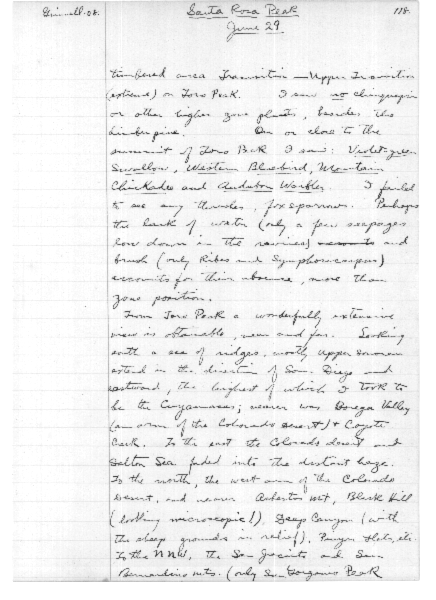 Grinnell-'08.
Santa Rosa Peak
118
June 29
timbered area Transition — Upper Transition
(extreme) on Toro Peak. I saw no chinquapin
or other higher zone plants, besides the
limber pine. On or close to the
summit of Toro Peak I saw: Violet-green
Swallow, Western Bluebird, Mountain
Chickadee and Audubon Warbler. I failed
to see any thrushes, fox sparrows. Perhaps
the lack of water (only a few seepages
low down in the ravines) accounts and
brush (only Ribes and Symphoricarpus)
accounts for their absence, more than
zone position.
From Toro Peak a wonderfully extensive
view is obtainable, near and far. Looking
south a sea of ridges, mostly Upper Sonoran
extend in the direction of San Diego and
eastward, the highest of which I took to
be the Cuyamacas; nearer was Borego Valley
(an arm of the Colorado desert) + Coyote
Cark. To the east the Colorado desert and
Salton Sea faded into the distant haze.
To the north, the west arm of the Colorado
Desert, and nearer Asbestos Mt, Black Hill
(looking microscopic!), Deep Canyon (with
the sheep grounds in relief), Pinyon Flats, etc.
To the NNW. the San Jacinto and San
Bernardino mts. (only San Gorgonio Peak